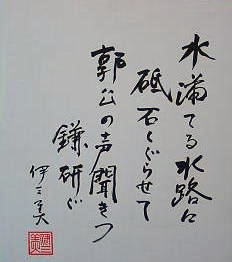 水満てる水路に
砥石くぐらせて
郭公の声聞きつ
鎌研ぐ
伊三美